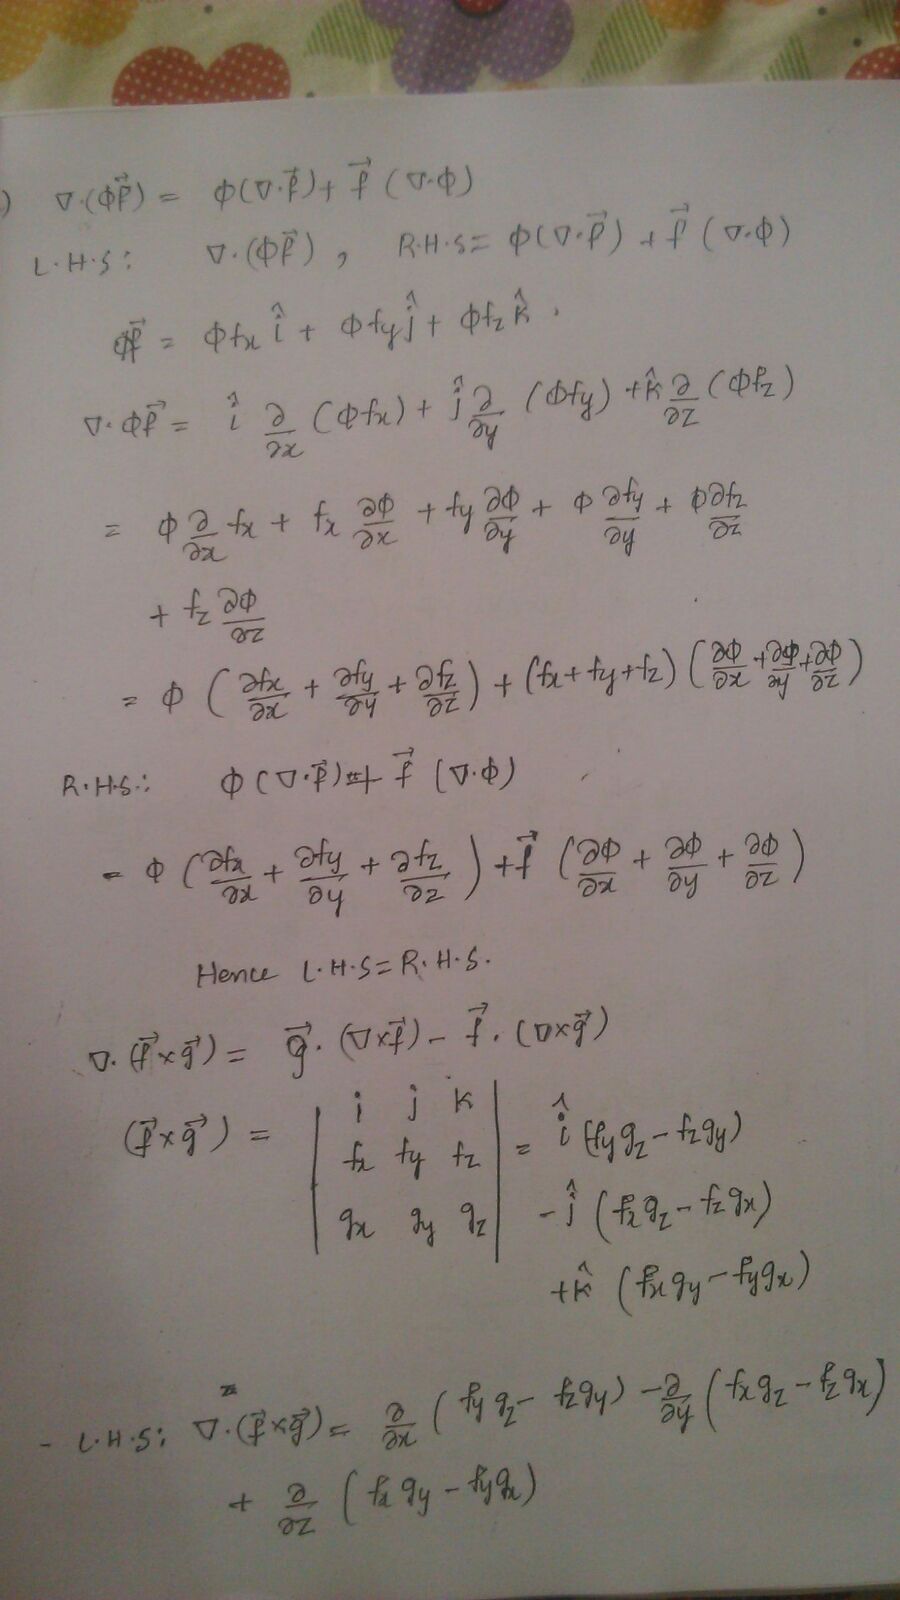 ) ∇·(ϕf⃗) = ϕ(∇·f⃗) + f⃗ (∇·ϕ)
L.H.S: ∇·(ϕf⃗) , R.H.S = ϕ(∇·f⃗) + f⃗ (∇·ϕ)
ϕf⃗ = ϕfx î + ϕfy ĵ + ϕfz k̂ .
∇·ϕf⃗ = î ∂/∂x (ϕfx) + ĵ ∂/∂y (ϕfy) + k̂ ∂/∂z (ϕfz)
= ϕ ∂/∂x fx + fx ∂ϕ/∂x + fy ∂ϕ/∂y + ϕ ∂fy/∂y + ϕ ∂fz/∂z
+ fz ∂ϕ/∂z
= ϕ (∂fx/∂x + ∂fy/∂y + ∂fz/∂z) + (fx + fy + fz) (∂ϕ/∂x + ∂ϕ/∂y + ∂ϕ/∂z)
R.H.S: ϕ(∇·f⃗) + f⃗ (∇·ϕ)
= ϕ (∂fx/∂x + ∂fy/∂y + ∂fz/∂z) + f⃗ (∂ϕ/∂x + ∂ϕ/∂y + ∂ϕ/∂z)
Hence L.H.S = R.H.S.
∇·(f⃗ × g⃗) = g⃗ · (∇×f⃗) − f⃗ · (∇×g⃗)
(f⃗ × g⃗) = | i j k | = î (fy gz − fz gy)
| fx fy fz | − ĵ (fx gz − fz gx)
| gx gy gz | + k̂ (fx gy − fy gx)
- L.H.S: ∇·(f⃗ × g⃗) = ∂/∂x (fy gz − fz gy) − ∂/∂y (fx gz − fz gx)
+ ∂/∂z (fx gy − fy gx)